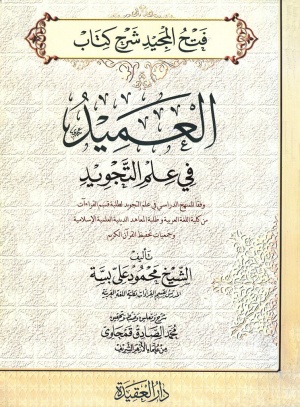 فتح المجيد شرح كتاب
العميد
في علم التجويد
وفقا للمنهج الدراسي في علم التجويد لطلبة قسم القراءات
من كلية اللغة العربية وطلبة المعاهد الدينية العلمية الإسلامية
وجمعيات تحفيظ القرآن الكريم
تأليف
الشيخ محمود علي بسة
المدرس بقسم القراءات بكلية اللغة العربية
محمد الصادق قمحاوي
من علماء الأزهر الشريف
دار العقيدة